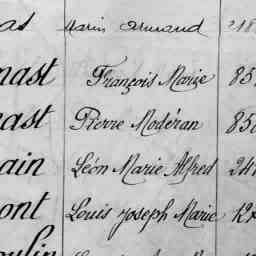 Marin Armand 218
nast François Marie 85
nast Pierre Modéran 85
ain Léon Marie Alfred 24
ont Louis Joseph Marie 12
oulin